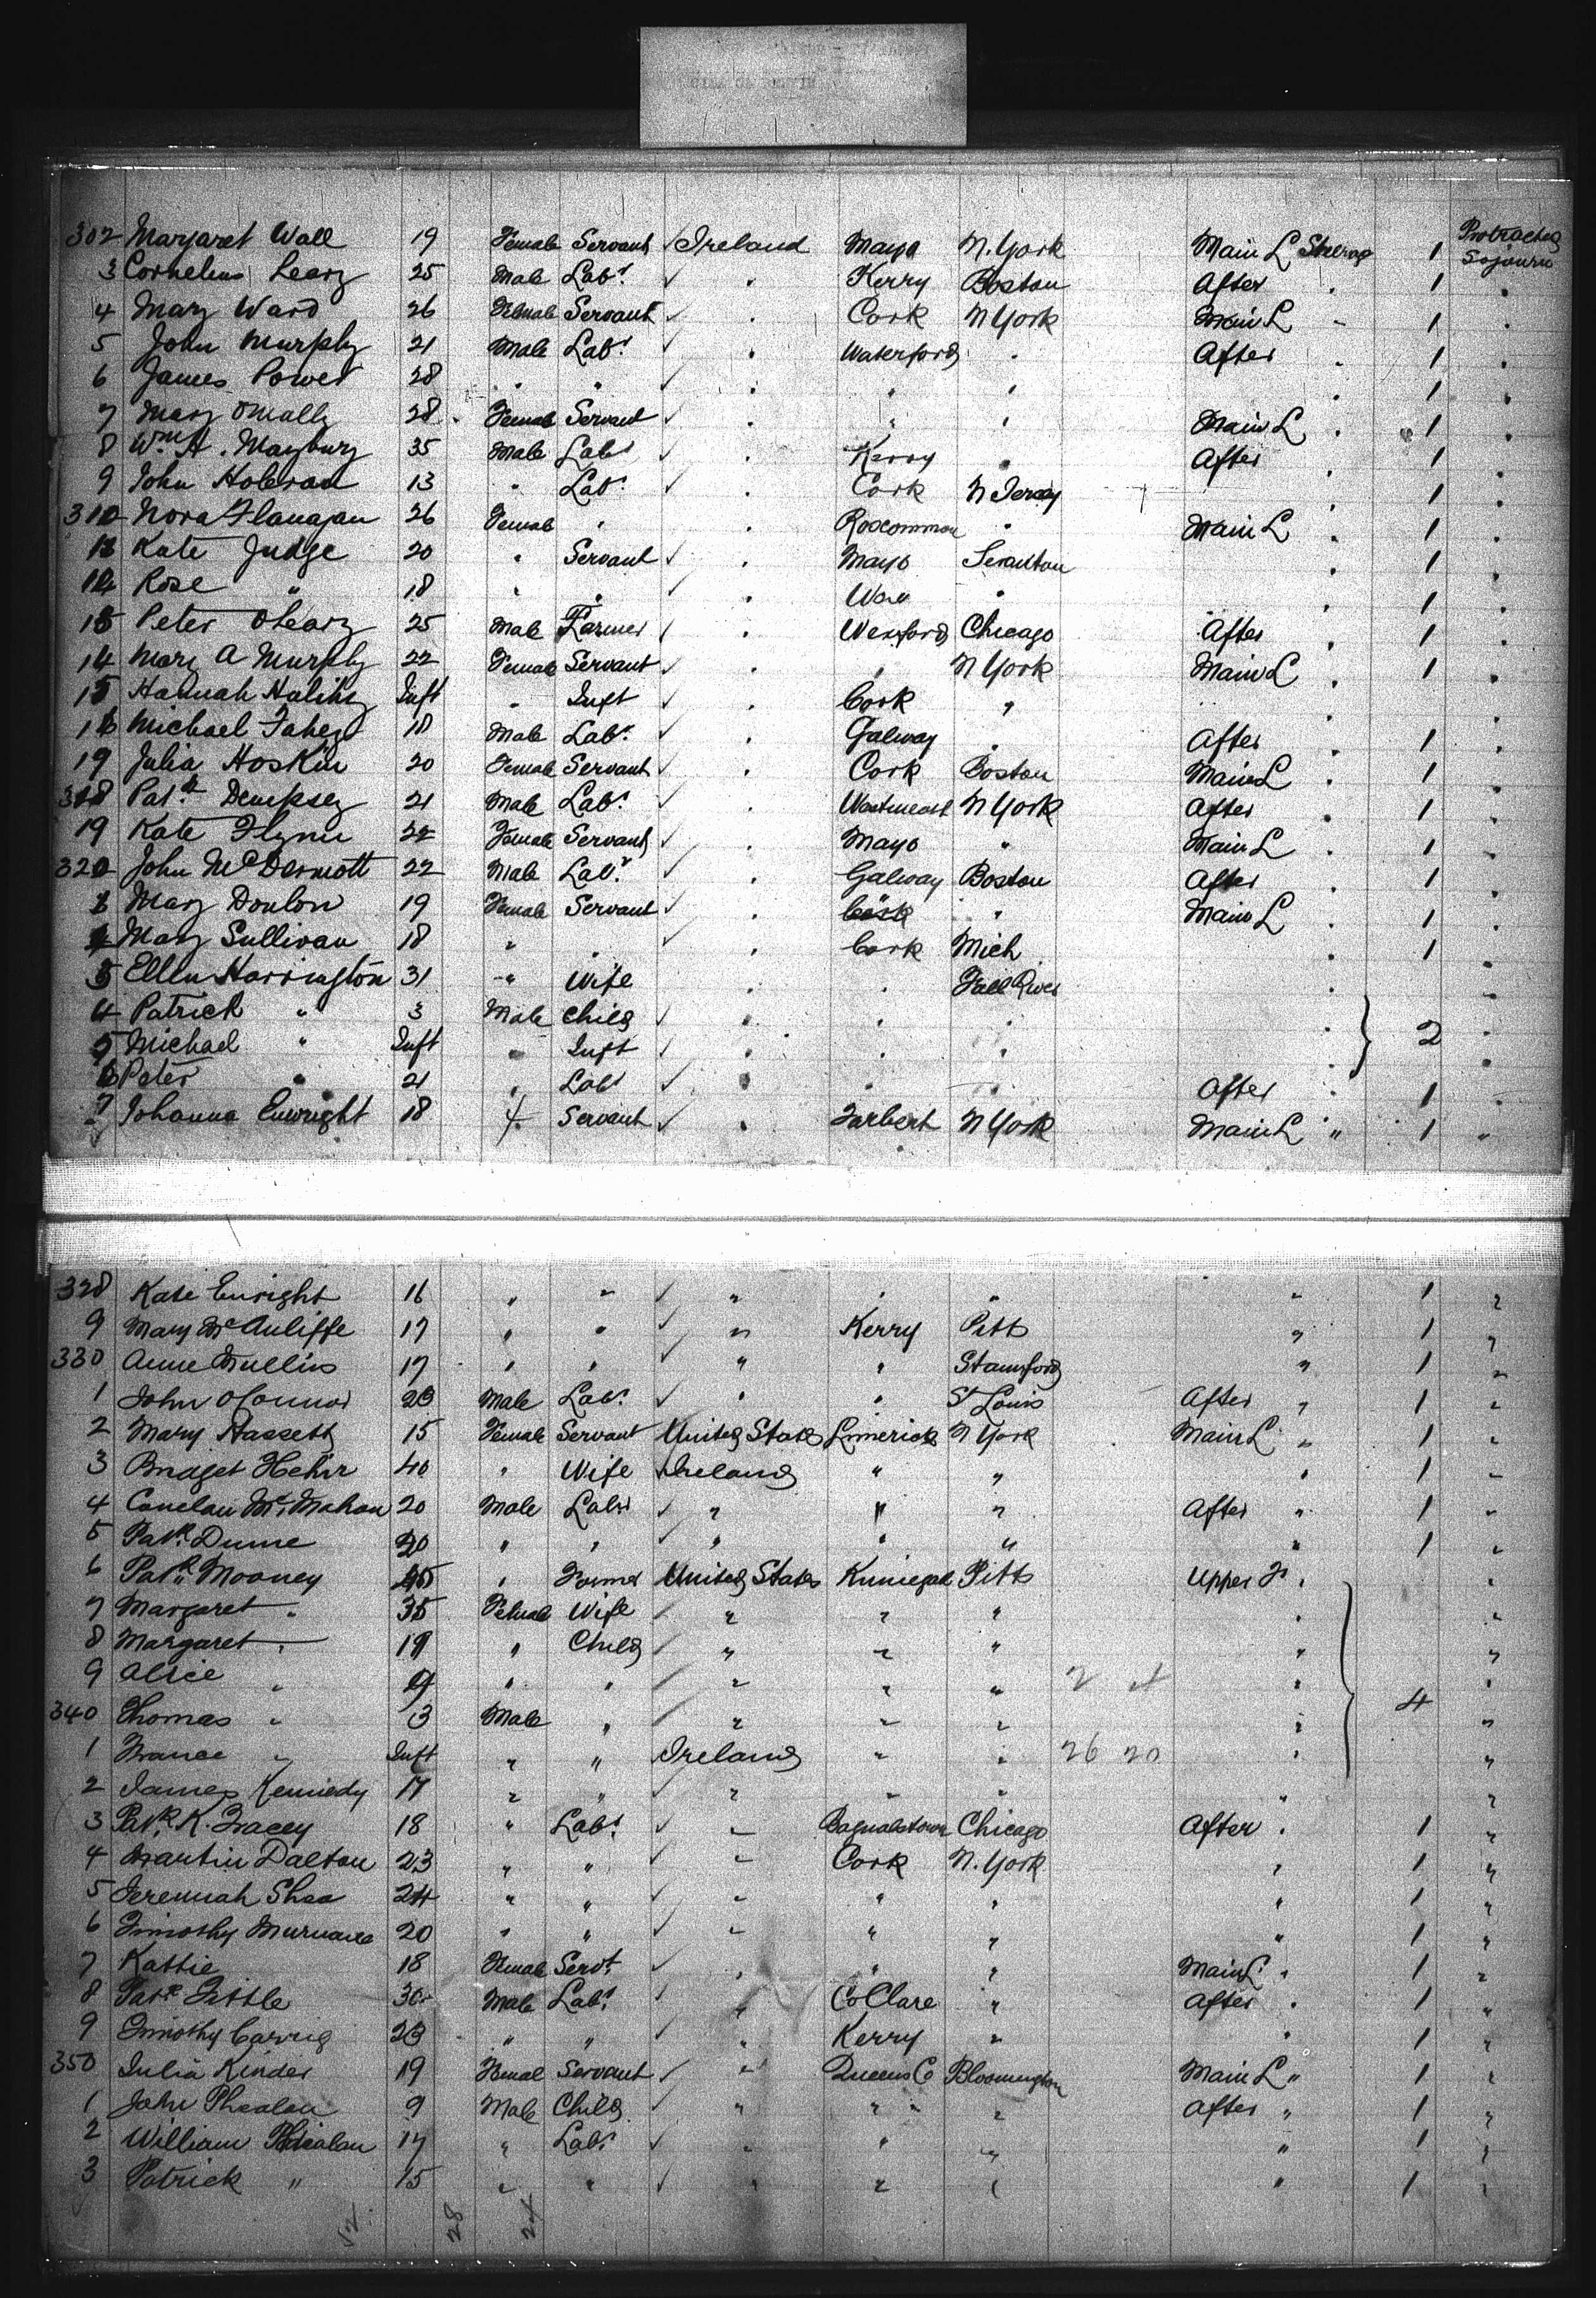 302 Margaret Wall 19 Female Servant Ireland Mayo N. York Main L Steerage 1 Protracted Sojourn
3 Cornelius Leary 25 Male Labr " Kerry Boston After " 1 "
4 Mary Ward 26 Female Servant " Cork N York Main L " 1 "
5 John Murphy 21 Male Labr " Waterford " After " 1 "
6 James Power 28 " " " " " " 1 "
7 Mary OMally 28 Female Servant " " " Main L " 1 "
8 Wm H. Maybury 35 Male Labr " Kerry " After " 1 "
9 John Holeran 13 " Labr " Cork N Jersey " 1 "
310 Nora Flanagan 26 Female " " Roscommon " Main L " 1 "
Kate Judge 20 " Servant " Mayo Scranton " 1 "
Rose " 18 " " " " " 1 "
Peter OLeary 25 Male Farmer " Wexford Chicago After " 1 "
14 Mary A Murphy 22 Female Servant " " N York Main L " 1 "
15 Hannah Inft " Inft " Cork " " "
16 Michael Fahey 18 Male Labr " Galway " After " 1 "
Julia Hoskin 20 Female Servant " Cork Boston Main L " 1 "
318 Patk Dempsey 21 Male Labr " Westmeath N York After " 1 "
19 Kate Flynn 22 Female Servant " Mayo " Main L " 1 "
320 John McDermott 22 Male Labr " Galway Boston After " 1 "
Mary Donlon 19 Female Servant " Cork " Main L " 1 "
Mary Sullivan 18 " " " Cork Mich " 1 "
3 Ellen Harrington 31 " Wife " " Fall River " "
4 Patrick " 3 Male Child " " " " 2 "
5 Michael " Inft " Inft " " " "
6 Peter " 21 " Labr " " " After " 1 "
7 Johanna Enwright 18 F Servant " Tarbert N York Main L " 1 "
328 Kate Enright 16 " " " " " " 1 "
9 Mary McAuliffe 17 " " " Kerry Pitts " 1 "
330 Anne Mullins 17 " " " " Stamford " 1 "
1 John OConnor 23 Male Labr " " St Louis After " 1 "
2 Mary Hassett 15 Female Servant United States Limerick N York Main L " 1 "
3 Bridget Hehir 40 " Wife Ireland " " " 1 "
4 McMahon 20 Male Labr " " " After " 1 "
5 Patk Dunne 20 " " " " " " 1 "
6 Patk Mooney 45 " Farmer United States Pitts Upper F " "
7 Margaret " 35 Female Wife " " " " "
8 Margaret " 19 " Child " " " " "
9 Alice " 9 " " " " " 2 " "
340 Thomas " 3 Male " " " " " 4 "
1 " Inft " " Ireland " " 26 20 " "
2 James Kennedy 17 " " " " " " "
3 Patk K. Tracey 18 " Labr " Bagnalstown Chicago After " 1 "
4 Martin Dalton 23 " " " Cork N. York " 1 "
5 Jeremiah Shea 24 " " " " " " 1 "
6 Timothy Murnane 20 " " " " " " 1 "
7 Kattie 18 Female Servt " " " Main L " 1 "
8 Patk Tittle 30 Male Labr " Co Clare " After " 1 "
9 Timothy Carrig 23 " " " Kerry " " 1 "
350 Julia Kinder 19 Female Servant " Queens Co Bloomington Main L " 1 "
1 John Phealan 9 Male Child " " " After " 1 "
2 William Phealan 17 " Labr " " " " 1 "
3 Patrick " 15 " " " " " " 1 "
52 28 24